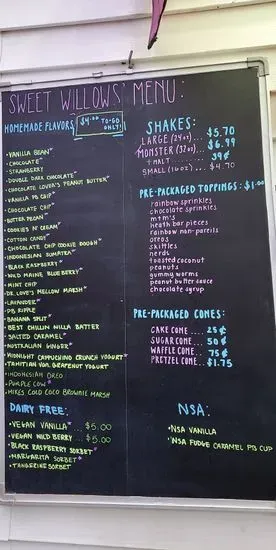 SWEET WILLOWS' MENU:
HOMEMADE FLAVORS
$4.00 TO-GO ONLY!
• VANILLA BEAN*
• CHOCOLATE*
• STRAWBERRY
• DOUBLE DARK CHOCOLATE*
• CHOCOLATE LOVER'S PEANUT BUTTER*
• VANILLA PB CHIP*
• CHOCOLATE CHIP*
• BUTTER PECAN*
• COOKIES N' CREAM*
• COTTON CANDY*
• CHOCOLATE CHIP COOKIE DOUGH*
• INDONESIAN SUMATRA*
• BLACK RASPBERRY*
• WILD MAINE BLUEBERRY*
• MINT CHIP
• DR. LOVE'J MELLOW MARSH*
• LAVENDER*
• PB RIPPLE
• BANANA SPLIT*
• BEST CHILLIN NILLA BATTER
• SALTED CARAMEL*
• AUSTRALIAN GINGER*
• MIDNIGHT CAPPUCHINO CRUNCH YOGURT*
• TAHITIAN VAN. GRAPENUT YOGURT
• INDONESIAN OREO
• PURPLE COW*
• MIKES COLD COCO BROWNIE MARSH
DAIRY FREE:
• VEGAN VANILLA*... $5.00
• VEGAN WILD BERRY ... $5.00
• BLACK RASPBERRY SORBET*
• MARGARITA SORBET*
• TANGERINE SORBET*
SHAKES:
LARGE (24oz)... $5.70
MONSTER (32oz)... $6.99
+ MALT ... 59¢
SMALL (16oz)... $4.70
PRE-PACKAGED TOPPINGS: $1.00
rainbow sprinkles
chocolate sprinkles
m+m's
heath bar pieces
rainbow non-pareils
oreos
skittles
nerds
toasted coconut
peanuts
gummy worms
peanut butter sauce
chocolate syrup
PRE-PACKAGED CONES:
CAKE CONE .... 25¢
SUGAR CONE.... 50¢
WAFFLE CONE ... 75¢
PRETZEL CONE... $1.75
NSA:
• NSA VANILLA
• NSA FUDGE CARAMEL PB CUP